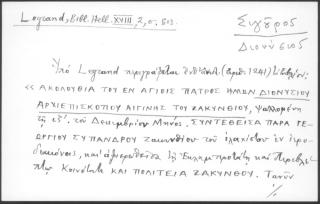 Legrand, Bibl. Hell. XVIII, 2, σ. 503.
Σιγοῦρος
Διονύσιος
Ὑπὸ Legrand περιγράφεται (ἀριθ. 1241)
« ΑΚΟΛΟΥΘΙΑ ΤΟΥ ΕΝ ΑΓΙΟΙΣ ΠΑΤΡΟΣ ΗΜΩΝ ΔΙΟΝΥΣΙΟΥ
ΑΡΧΙΕΠΙΣΚΟΠΟΥ ΑΙΓΙΝΗΣ ΤΟΥ ΖΑΚΥΝΘΙΟΥ, ψαλλομένη
τῇ ιζ΄. τοῦ Δεκεμβρίου Μηνός, ΣΥΝΤΕΘΕΙΣΑ ΠΑΡΑ ΓΕ
ΩΡΓΙΟΥ ΣΥΠΑΝΔΡΟΥ Ζακυνθίου τοῦ ἐλαχίστου ἐν ἱερο
διακόνοις, καὶ ἀφιερωθεῖσα τῇ Ἐκλαμπροτάτῃ καὶ Περιβλέ
πτῳ Κοινότητι καὶ ΠΟΛΙΤΕΙΑ ΖΑΚΥΝΘΟΥ. Τανῦν